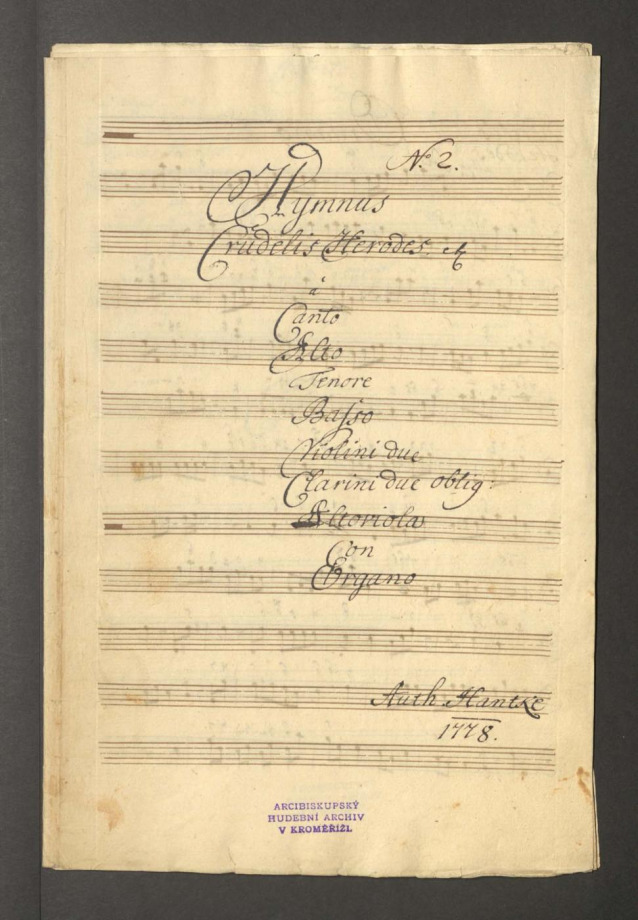 No. 2.
Hymnus
Crudelis Herodes.
à
Canto
Alto
Tenore
Basso
Violini due
Clarini due oblig:
Altoviola
Con
Organo
Auth Hantke
1778.
ARCIBISKUPSKÝ
HUDEBNÍ ARCHIV
V KROMĚŘÍŽI.